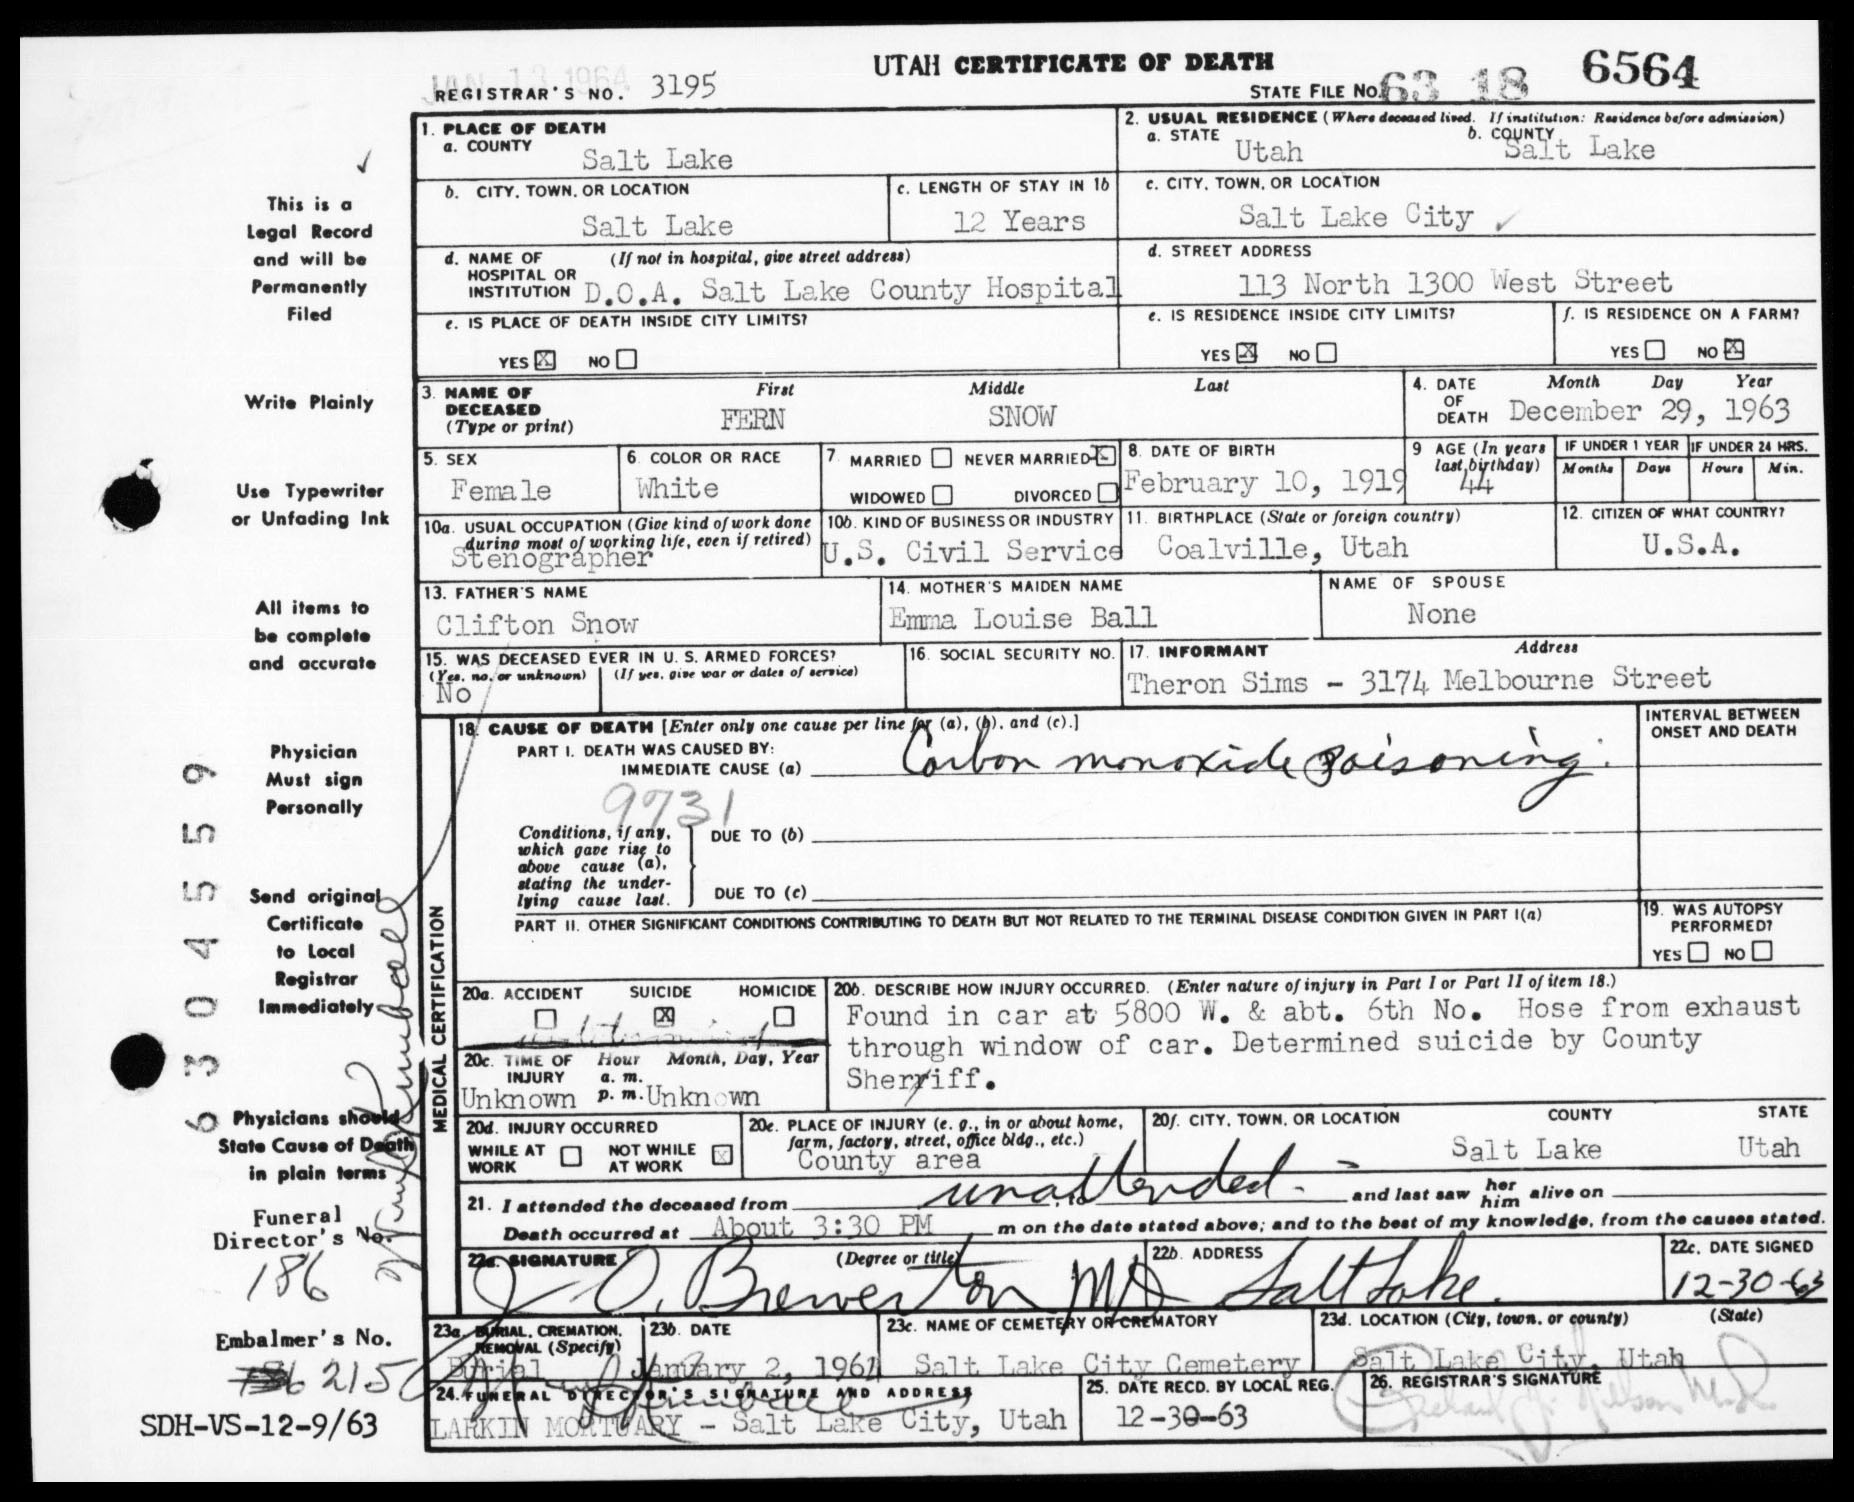 UTAH CERTIFICATE OF DEATH
JAN 13 1964
REGISTRAR'S NO. 3195
STATE FILE NO. 63 18 6564
1. PLACE OF DEATH
a. COUNTY
Salt Lake
2. USUAL RESIDENCE (Where deceased lived. If institution: Residence before admission)
a. STATE Utah
b. COUNTY Salt Lake
b. CITY, TOWN, OR LOCATION
Salt Lake
c. LENGTH OF STAY IN 1b
12 Years
c. CITY, TOWN, OR LOCATION
Salt Lake City
d. NAME OF HOSPITAL OR INSTITUTION (If not in hospital, give street address)
D.O.A. Salt Lake County Hospital
d. STREET ADDRESS
113 North 1300 West Street
e. IS PLACE OF DEATH INSIDE CITY LIMITS?
YES X NO
e. IS RESIDENCE INSIDE CITY LIMITS?
YES X NO
f. IS RESIDENCE ON A FARM?
YES NO X
3. NAME OF DECEASED (Type or print)
First Middle Last
FERN SNOW
4. DATE OF DEATH
Month Day Year
December 29, 1963
5. SEX
Female
6. COLOR OR RACE
White
7. MARRIED NEVER MARRIED X
WIDOWED DIVORCED
8. DATE OF BIRTH
February 10, 1919
9 AGE (In years last birthday)
44
IF UNDER 1 YEAR
Months Days
IF UNDER 24 HRS.
Hours Min.
10a. USUAL OCCUPATION (Give kind of work done during most of working life, even if retired)
Stenographer
10b. KIND OF BUSINESS OR INDUSTRY
U.S. Civil Service
11. BIRTHPLACE (State or foreign country)
Coalville, Utah
12. CITIZEN OF WHAT COUNTRY?
U.S.A.
13. FATHER'S NAME
Clifton Snow
14. MOTHER'S MAIDEN NAME
Emma Louise Ball
NAME OF SPOUSE
None
15. WAS DECEASED EVER IN U. S. ARMED FORCES?
(Yes, no, or unknown) (If yes, give war or dates of service)
No
16. SOCIAL SECURITY NO.
17. INFORMANT Address
Theron Sims - 3174 Melbourne Street
MEDICAL CERTIFICATION
18. CAUSE OF DEATH [Enter only one cause per line for (a), (b), and (c).]
PART I. DEATH WAS CAUSED BY:
IMMEDIATE CAUSE (a) Carbon monoxide poisoning.
INTERVAL BETWEEN ONSET AND DEATH
9731
Conditions, if any, which gave rise to above cause (a), stating the underlying cause last.
DUE TO (b)
DUE TO (c)
PART II. OTHER SIGNIFICANT CONDITIONS CONTRIBUTING TO DEATH BUT NOT RELATED TO THE TERMINAL DISEASE CONDITION GIVEN IN PART I(a)
19. WAS AUTOPSY PERFORMED?
YES NO
20a. ACCIDENT SUICIDE HOMICIDE
X
20b. DESCRIBE HOW INJURY OCCURRED. (Enter nature of injury in Part I or Part II of item 18.)
Found in car at 5800 W. & abt. 6th No. Hose from exhaust
through window of car. Determined suicide by County
Sherriff.
20c. TIME OF INJURY Hour Month, Day, Year
a. m.
Unknown p. m. Unknown
20d. INJURY OCCURRED
WHILE AT WORK NOT WHILE AT WORK X
20e. PLACE OF INJURY (e. g., in or about home, farm, factory, street, office bldg., etc.)
County area
20f. CITY, TOWN, OR LOCATION COUNTY STATE
Salt Lake Utah
21. I attended the deceased from unattended - to and last saw her him alive on
Death occurred at About 3:30 PM m on the date stated above; and to the best of my knowledge, from the causes stated.
22a. SIGNATURE (Degree or title)
J O. Brewerton MD
22b. ADDRESS
Salt Lake.
22c. DATE SIGNED
12-30-63
23a. BURIAL, CREMATION, REMOVAL (Specify)
Burial
23b. DATE
January 2, 1964
23c. NAME OF CEMETERY OR CREMATORY
Salt Lake City Cemetery
23d. LOCATION (City, town, or county) (State)
Salt Lake City, Utah
24. FUNERAL DIRECTOR'S SIGNATURE AND ADDRESS
LARKIN MORTUARY - Salt Lake City, Utah
25. DATE RECD. BY LOCAL REG.
12-30-63
26. REGISTRAR'S SIGNATURE
This is a
Legal Record
and will be
Permanently
Filed
Write Plainly
Use Typewriter
or Unfading Ink
All items to
be complete
and accurate
Physician
Must sign
Personally
Send original
Certificate
to Local
Registrar
Immediately
Physicians should
State Cause of Death
in plain terms
Funeral
Director's No.
186
Embalmer's No.
215
SDH-VS-12-9/63
6304559